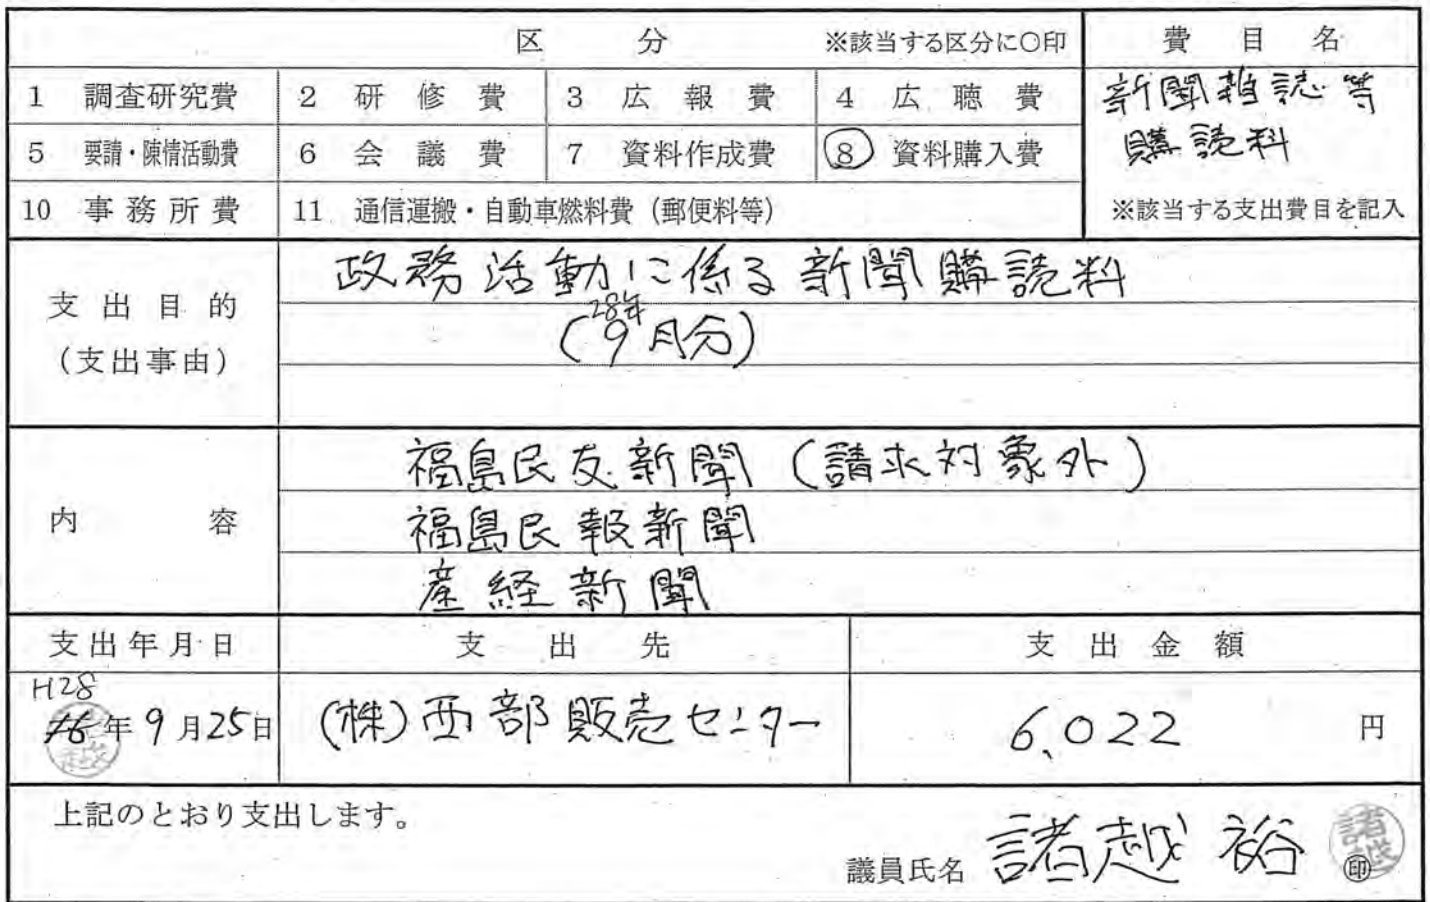 区 分 ※該当する区分に○印 費 目 名
1 調査研究費 2 研 修 費 3 広 報 費 4 広 聴 費 新聞雑誌等
5 要請・陳情活動費 6 会 議 費 7 資料作成費 8 資料購入費 購読料
10 事務所費 11 通信運搬・自動車燃料費(郵便料等) ※該当する支出費目を記入
支出目的
(支出事由)
政務活動に係る新聞購読料
28年
(9月分)
内 容
福島民友新聞(請求対象外)
福島民報新聞
産経新聞
支出年月日 支 出 先 支 出 金 額
H28
年9月25日 (株)西部販売センター 6,022 円
上記のとおり支出します。
議員氏名 諸越 裕 印
諸越